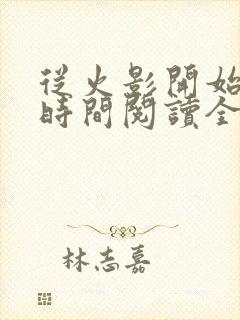 從火影開始
時間閱讀全
林志嘉